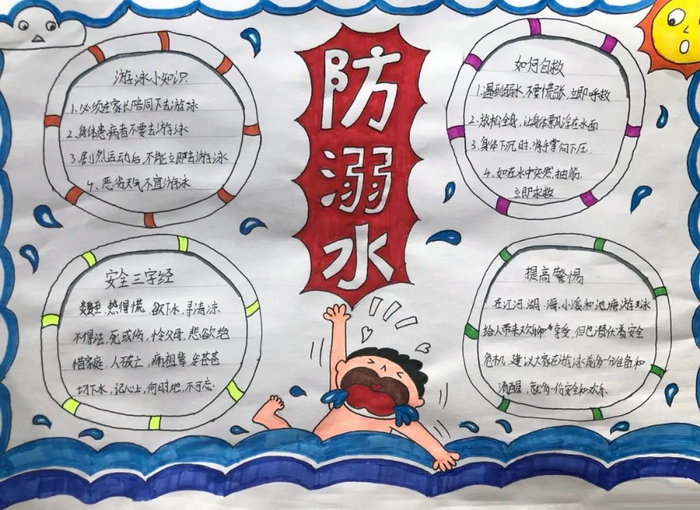 防溺水
游泳小知识
1、必须在家长陪同下去游泳
2、身体患病者不要去游泳
3、剧烈运动后，不能立即去游泳
4、恶劣天气不宜游泳
如何自救
1、遇到溺水，不要慌张，立即呼救
2、放松全身，让身体飘浮在水面
3、身体下沉时，将手掌向下压．
4、如在水中突然抽筋
立即求救
安全三字经
热得慌 欲下水，寻清凉，
不得法，死或伤，怜父母，悲欲绝
惜家庭，人破亡，痛祖集
切下水，记心上，何时地，不可忘
提高警惕
在江河，湖，海，小溪和池塘游泳
给人带来欢 享受，但也潜伏着安全
危机，建议大家在游泳前 和
清醒， 份安全和欢乐